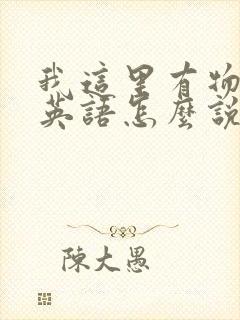 我這里有物
英語怎麼說
陳大愚